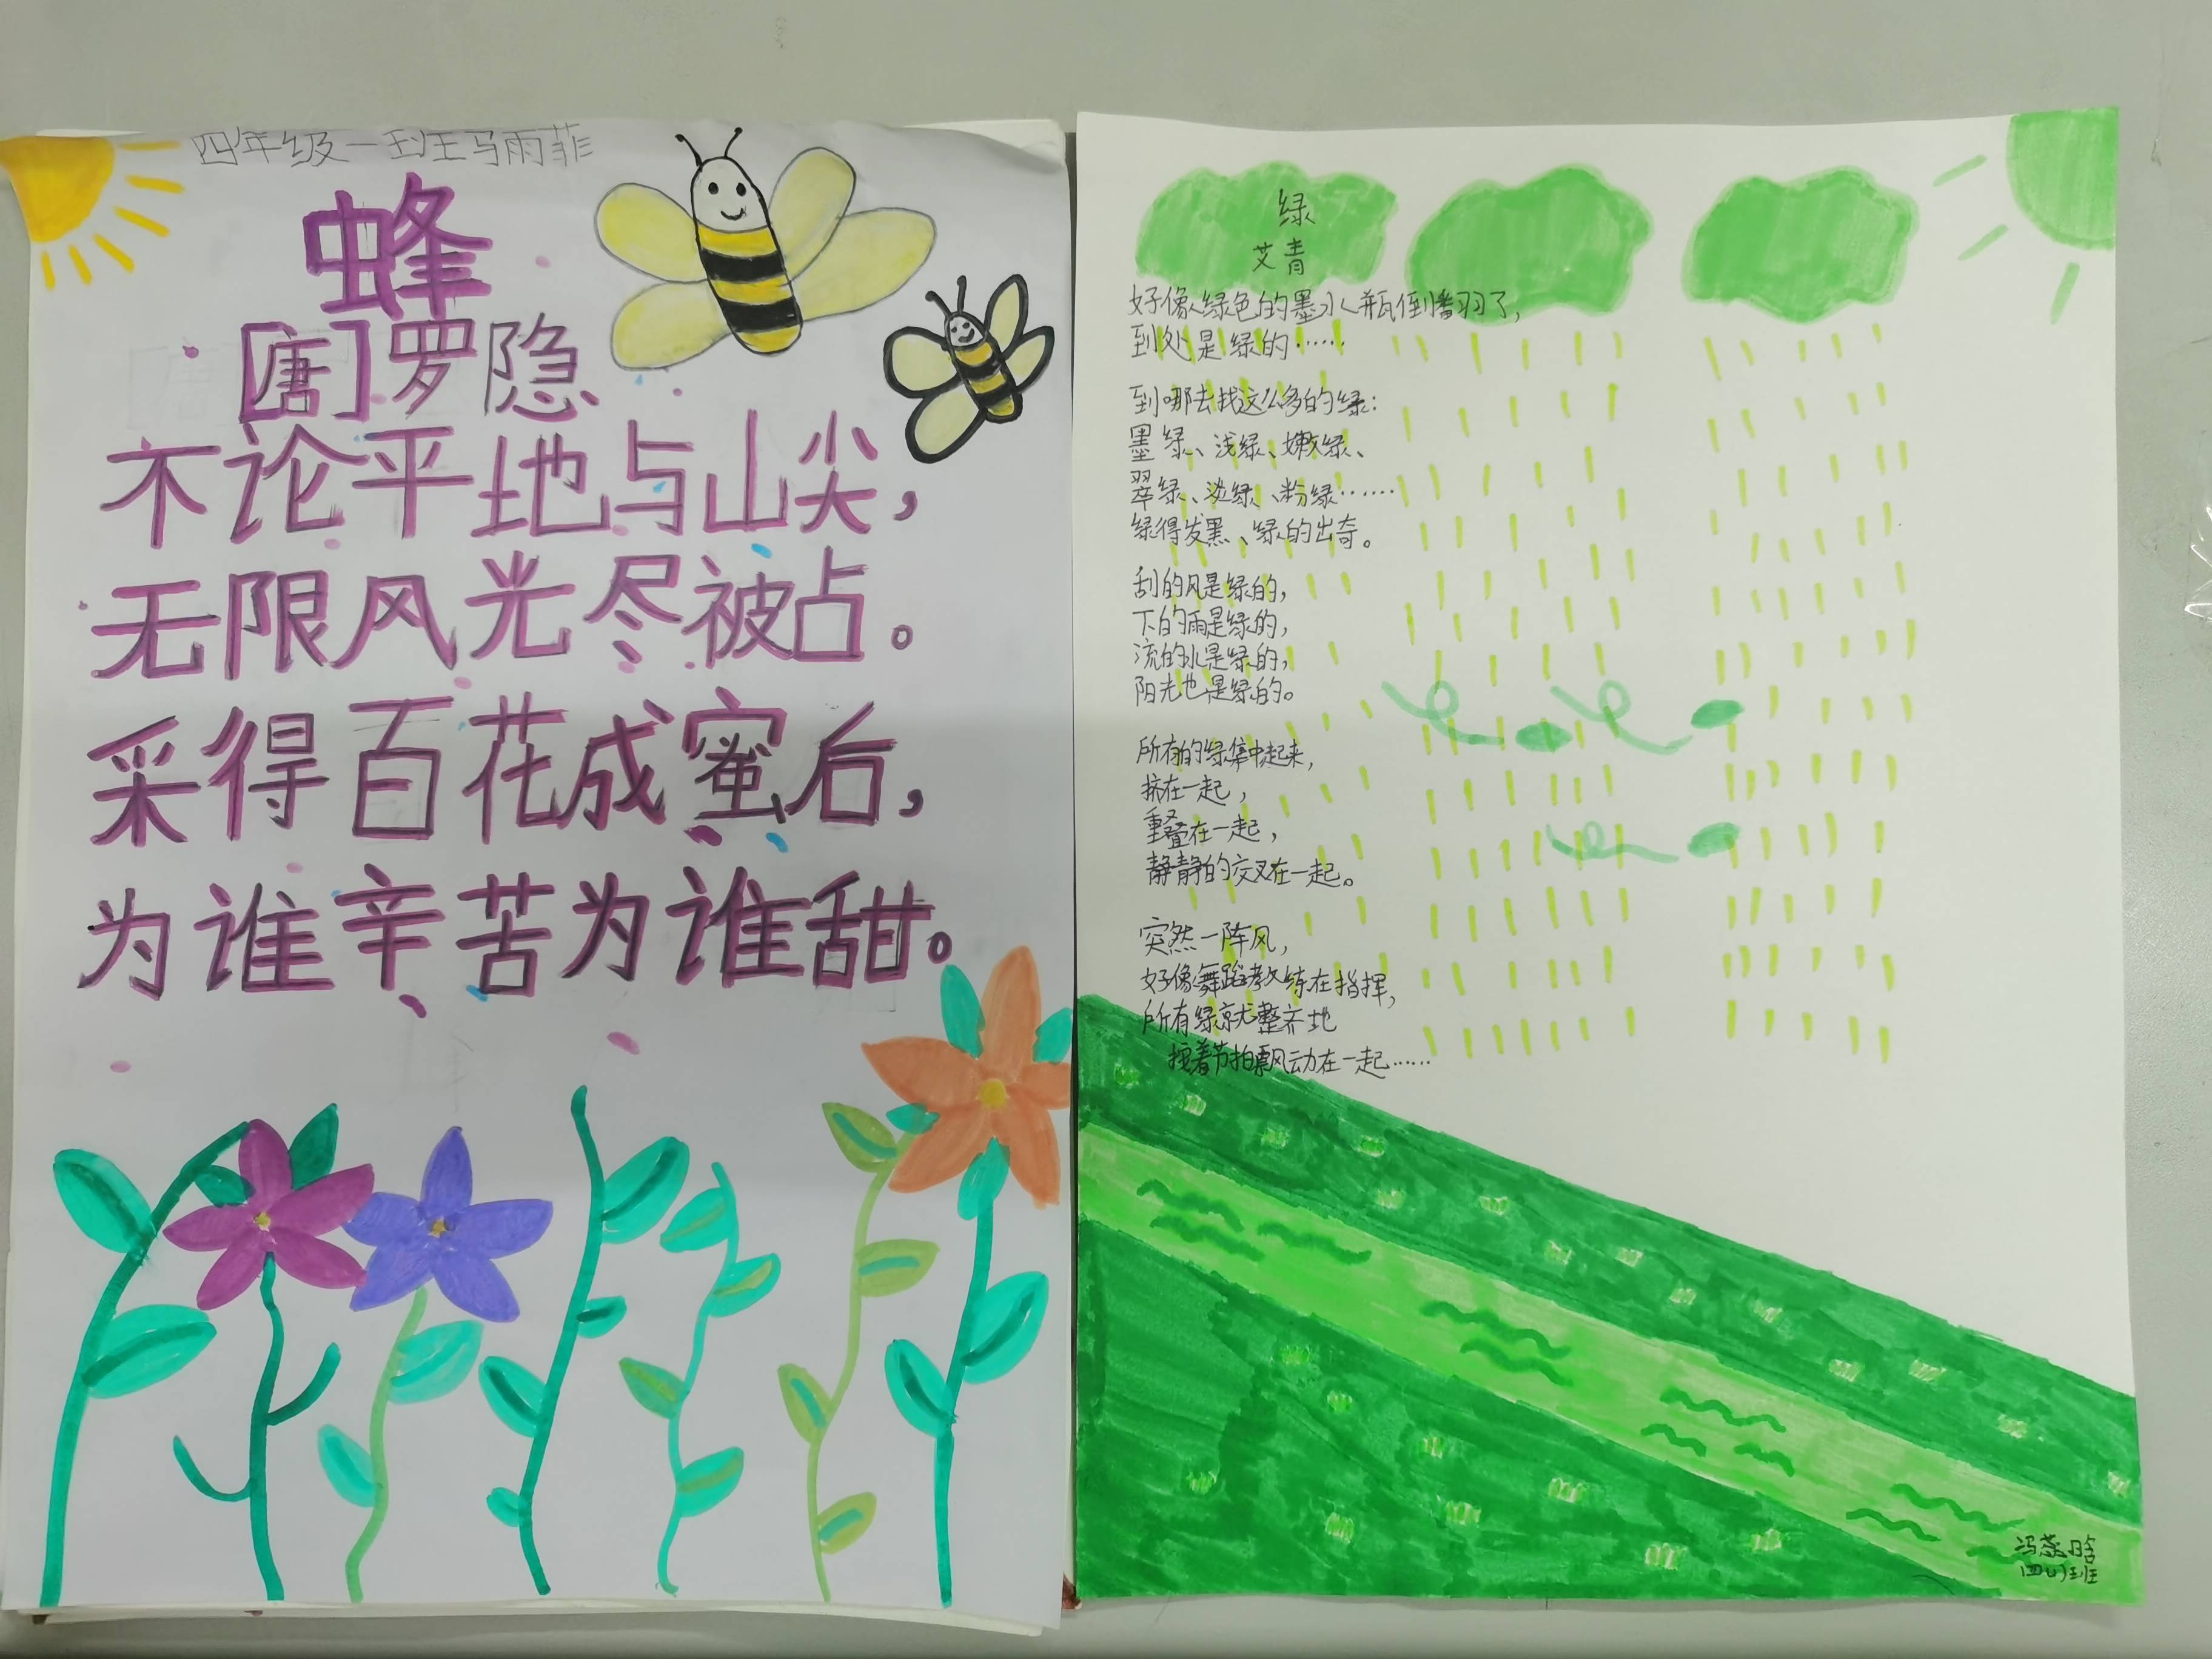 四年级一班马雨菲
蜂
[唐]罗隐
不论平地与山尖，
无限风光尽被占。
采得百花成蜜后，
为谁辛苦为谁甜。
绿
艾青
好像绿色的墨水瓶倒翻了，
到处是绿的……
到哪去找这么多的绿：
墨绿、浅绿、嫩绿、
翠绿、淡绿、粉绿……
绿得发黑、绿的出奇。
刮的风是绿的，
下的雨是绿的，
流的水是绿的，
阳光也是绿的。
所有的绿集中起来，
挤在一起，
重叠在一起，
静静的交叉在一起。
突然一阵风，
好像舞蹈教练在指挥，
所有绿就整齐地
按着节拍飘动在一起……
冯
班